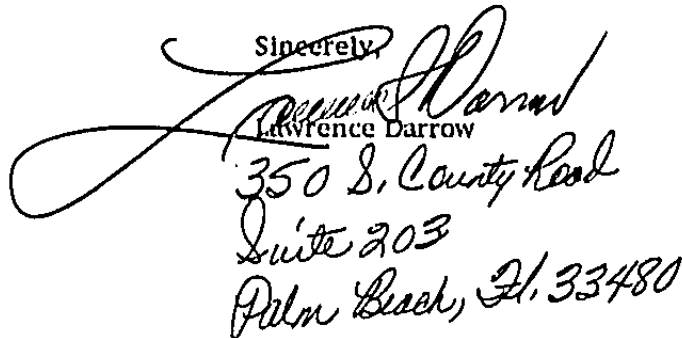 Sincerely,
Lawrence Darrow
Lawrence Darrow
350 S. County Road
Suite 203
Palm Beach, Fl. 33480